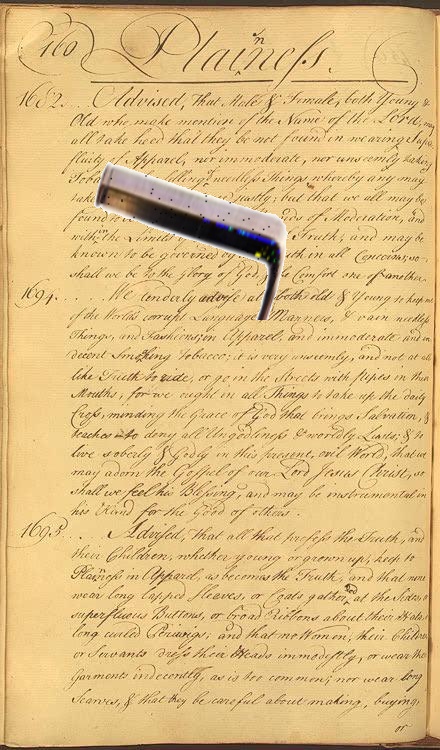 160 Plainess.
1682... Advised, That Male & Female, both Young &
Old who make mention of the Name of the Lord, may
all take heed that they be not found in wearing Supr
fluity of Apparel, nor immoderate, nor unseemly taking
Toba needless Things whereby any may
justly; but that we all may be
found ds of Moderation, and
with in the Limits Truth; and may be
known to be governed by th in all Concerns, so
shall we be to the Glory of God, & the Comfort one of another
1694.... We tenderly advise all both old & Young to keep out
of the Worlds corrupt Language, Manners, & vain needless
Things, and Fashions in Apparel, and immoderate and in
decent Smoking Tobacco; it is very unseemly, and not at all
like Truth to ride, or go in the Streets with pipes in their
Mouths, for we ought in all Things to take up the daily
Cross, minding the Grace of God that brings Salvation, &
teaches to deny all Ungodliness & worldly Lusts, & to
live soberly & Godly in this present, evil World, that we
may adorn the Gospel of our Lord Jesus Christ, so
shall we feel his Blessing, and may be instrumental in
his Hand for the Good of others.
1695... Advised, that all that profess the Truth, and
their Children, whether young or grown up, keep to
Plainess in Apparel, as becomes the Truth, and that none
wear long lapped Sleaves, or Coats gather'd at the Sides, or
superfluous Buttons, or broad Ribbons about their Hats, or
long curled Periwigs, and that no Women, their Children
or Servants dress their Heads immodestly, or wear their
Garments indecently, as is too common; nor wear long
Scarves, & that they be careful about making, buying,
or